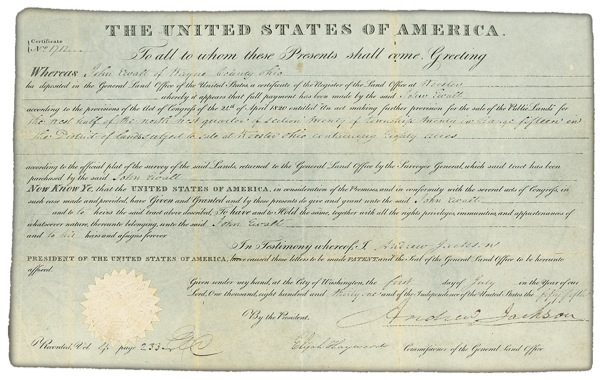 THE UNITED STATES OF AMERICA.
Certificate
No.
To all to whom these Presents shall come, Greeting
Whereas John Ewalt of Wayne County Ohio
ha deposited in the General Land Office of the United States, a certificate of the Register of the Land Office at Wooster
whereby it appears that full payment has been made by the said John Ewalt
according to the provisions of the Act of Congress of the 24th of April 1820 entitled "An act making further provision for the sale of the Public Lands" for
the west half of the north west quarter of section twenty of Township twenty in range fifteen in
the District of lands subject to sale at Wooster Ohio containing Eighty acres
according to the official plat of the survey of the said Lands, returned to the General Land Office by the Surveyor General, which said tract has been
purchased by the said John Ewalt
Now Know Ye, that the UNITED STATES OF AMERICA, in consideration of the Premises, and in conformity with the several acts of Congress, in
such case made and provided, have Given and Granted and by these presents do give and grant unto the said John Ewalt
and to heirs the said tract above described, To have and to Hold the same, together with all the rights, privileges, immunities, and appurtenances of
whatsoever nature, thereunto belonging, unto the said John Ewalt
and to his heirs and assigns forever.
In Testimony whereof, I, Andrew Jackson
PRESIDENT OF THE UNITED STATES OF AMERICA, have caused these letters to be made PATENT, and the Seal of the General Land Office to be hereunto
affixed.
Given under my hand, at the City of Washington, the first day of July in the Year of our
Lord, One thousand, eight hundred and and of the Independence of the United States the fifty fifth
By the President.
Andrew Jackson
Recorded, Vol. 4 page 233
Elijah Hayward Commissioner of the General Land Office